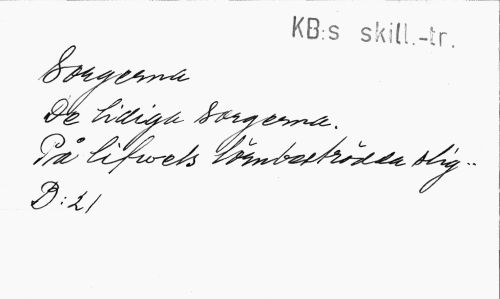 KB:s skill.-tr.
Sorgerna
De lidiga Sorgerna.
På lifwets törnbeströdda stig..
D:21